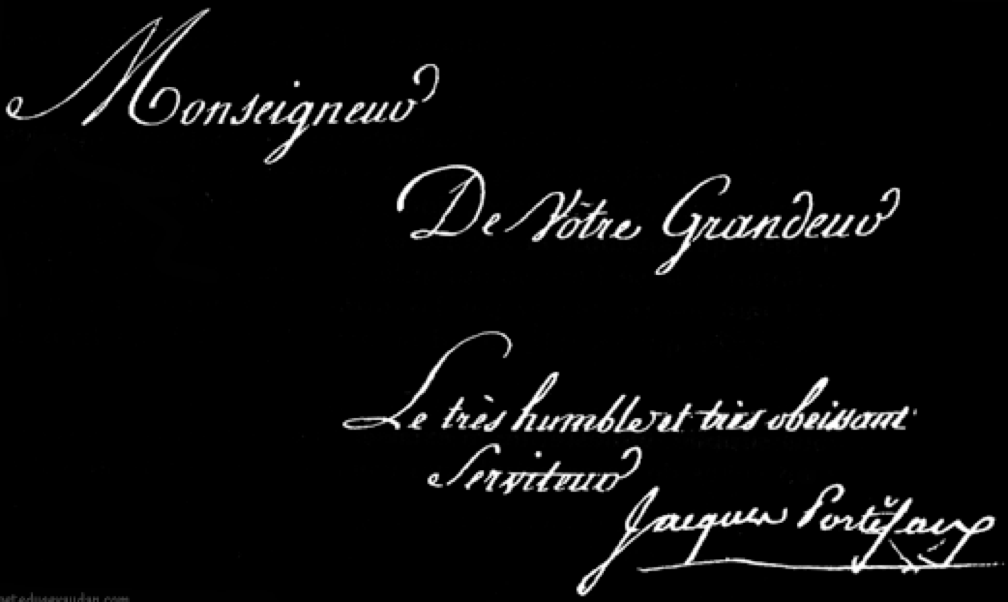 Monseigneur
De Vôtre Grandeur
Le très humble et très obeissant
Serviteur
Jacques Portefaix